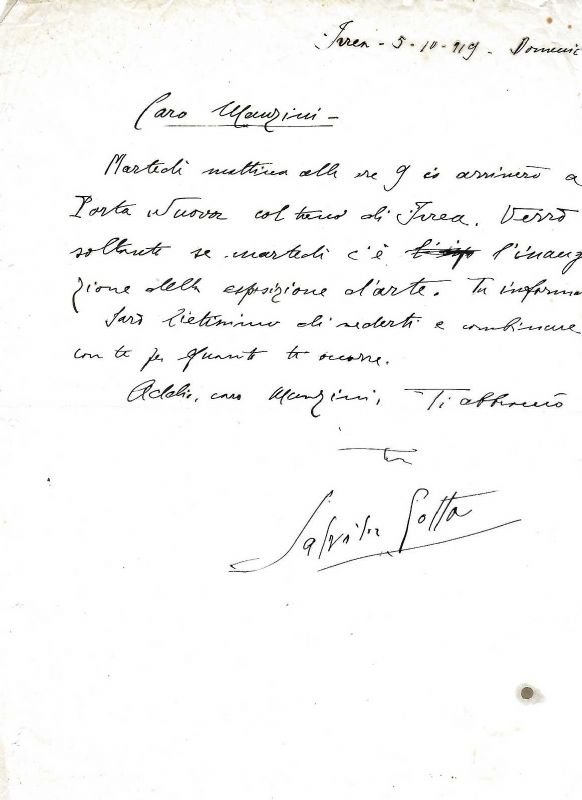 Ivrea - 5-10-919 - Domenic
Caro Manzini -
Martedì mattina alle ore 9 io arriverò a
Porta Nuova col treno di Ivrea. Verrò
soltanto se martedì c'è l'inaug
zione della esposizione d'arte. Tu informa
Sarò lietissimo di vederti e combinare
con te per quanto ti occorre.
Addio, caro Manzini, Ti abbraccio
tuo
Salvator Gotta